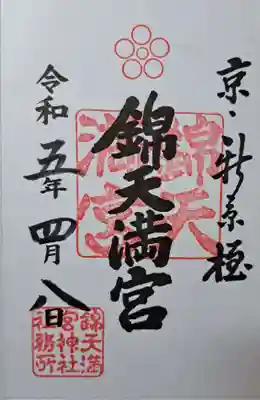 京・新京極
錦天満宮
錦天
満宮
令和五年四月八日
錦天満
宮神社
社務所